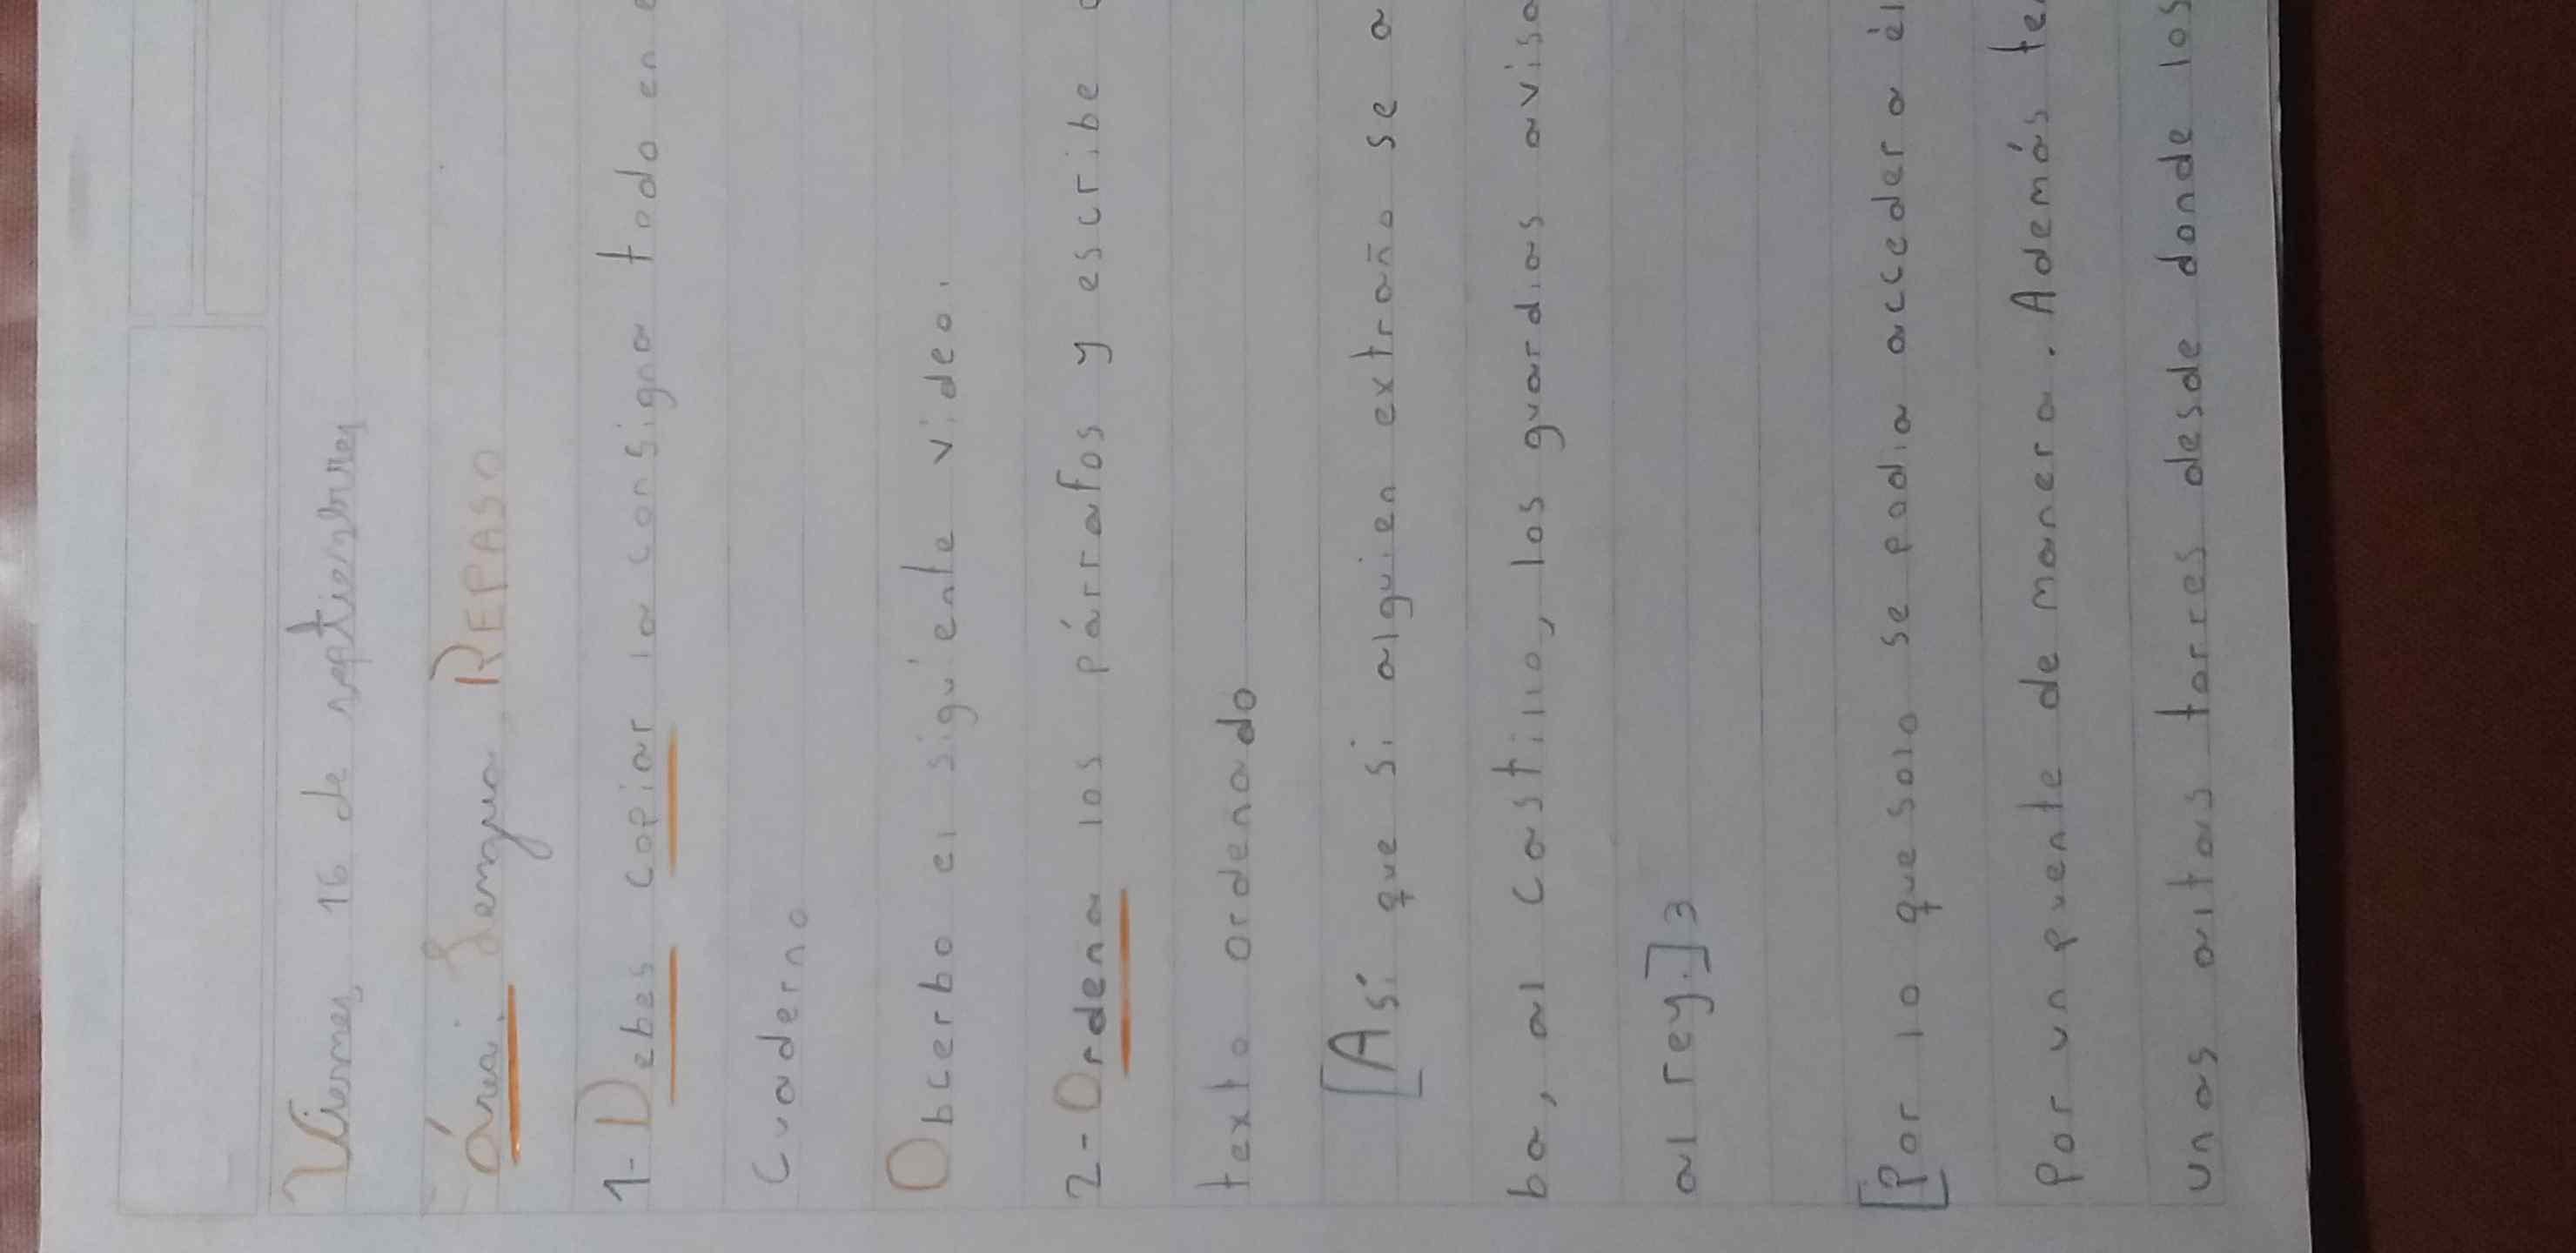 Viernes, 16 de septiembre
Área: Lengua REPASO
1-Debes copiar la consigna todo en e
Cuaderno
Obcerbo el siguiente video.
2-Ordena los párrafos y escribe
texto ordenado
[Así que si alguien extraño se a
ba, al castillo, los guardias avisa
al rey.]3
[Por lo que solo se podia acceder a él
Por un puente de manera. Además te
unas altas torres desde donde los